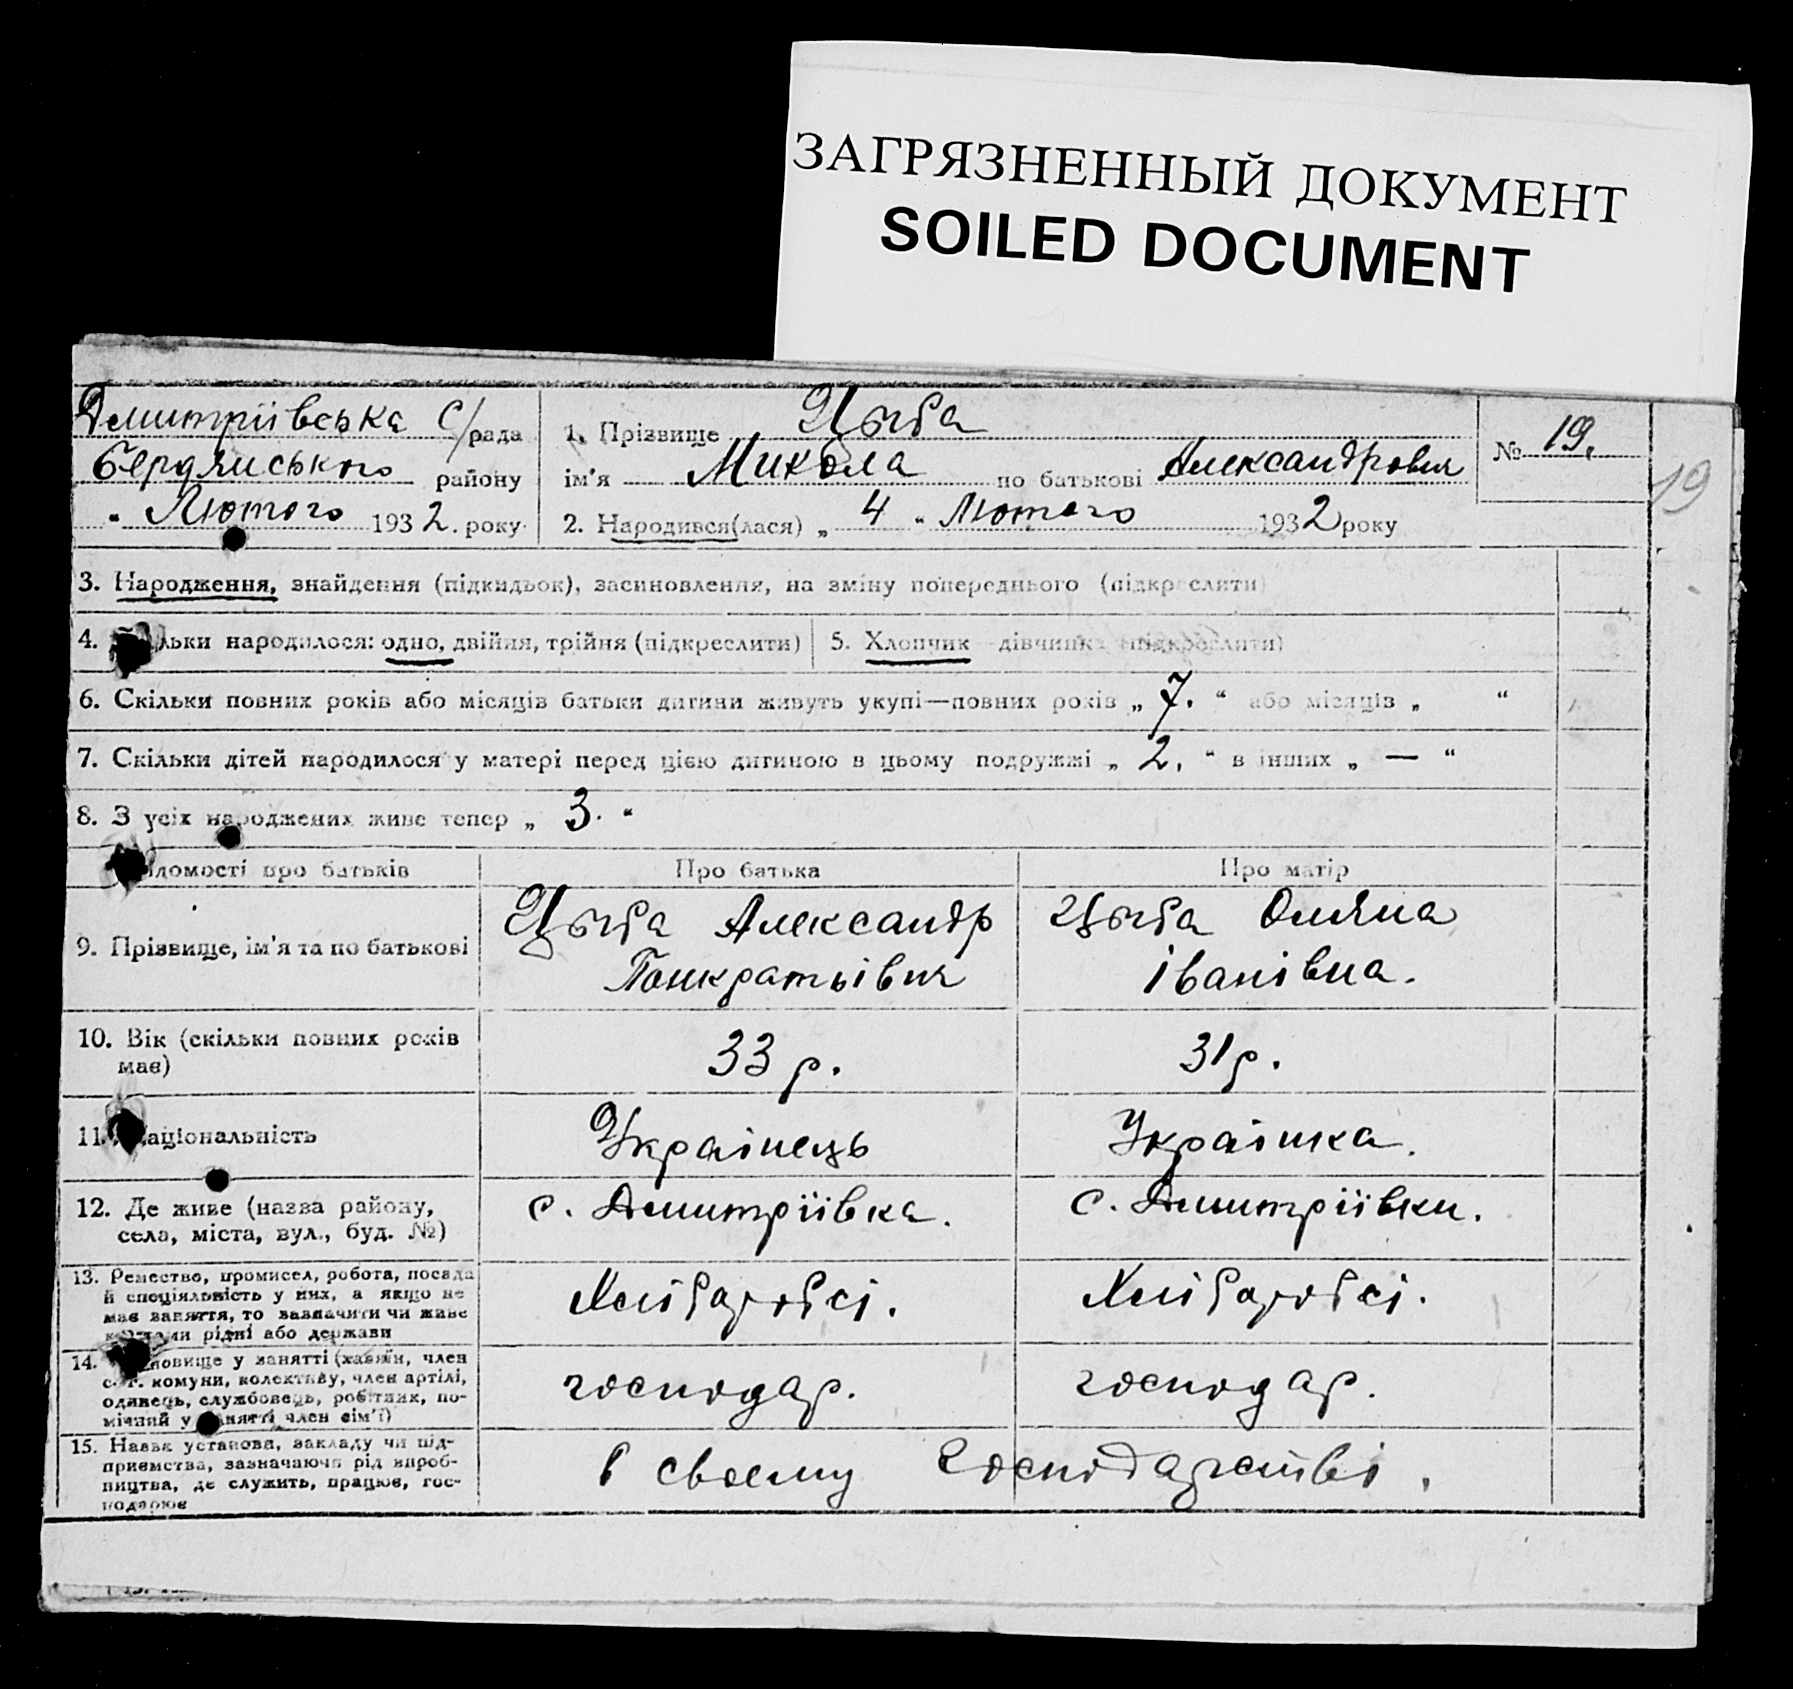 ЗАГРЯЗНЕННЫЙ ДОКУМЕНТ
SOILED DOCUMENT
Дмитріївська с/рада
Бердянського району
„ Лютого 1932. року
1. Прізвище Цыба
ім'я Микола по батькові Александрович
2. Народився(лася) „ 4 „ Лютого 1932 року
№ 19.
19
3. Народження, знайдення (підкидьок), засиновлення, на зміну попереднього (підкреслити)
4. льки народилося: одно, двійня, трійня (підкреслити)
5. Хлопчик—дівчинка (підкреслити)
6. Скільки повних років або місяців батьки дитини живуть укупі—повних років „ 7. “ або місяців „ “
7. Скільки дітей народилося у матері перед цією дитиною в цьому подружжі „ 2. “ в інших „ — “
8. З усіх народжених живе тепер „ 3. “
ідомості про батьків
Про батька
Про матір
9. Прізвище, ім'я та по батькові
Цыба Александр
Панкратьівич
Цыба Оляна
Іванівна.
10. Вік (скільки повних років
має)
33 р.
31 р.
11. аціональність
Українець
Українка.
12. Де живе (назва району,
села, міста, вул., буд. №)
с. Дмитріївка.
с. Дмитріївки.
13. Ремество, промисел, робота, посада
й спеціяльність у них, а якщо не
має заняття, то зазначити чи живе
коштами рідні або держави
Хлібаробсі.
Хлібаробсі.
14. новище у занятті (хазяїн, член
с.-г. комуни, колективу, член артілі,
одинець, службовець, робітник, по-
мічний у занятті член сім'ї)
господар.
господар.
15. Назва установа, закладу чи під-
приємства, зазначаючи рід вироб-
ництва, де служить, працює, гос-
подарює
в своему господарстві.